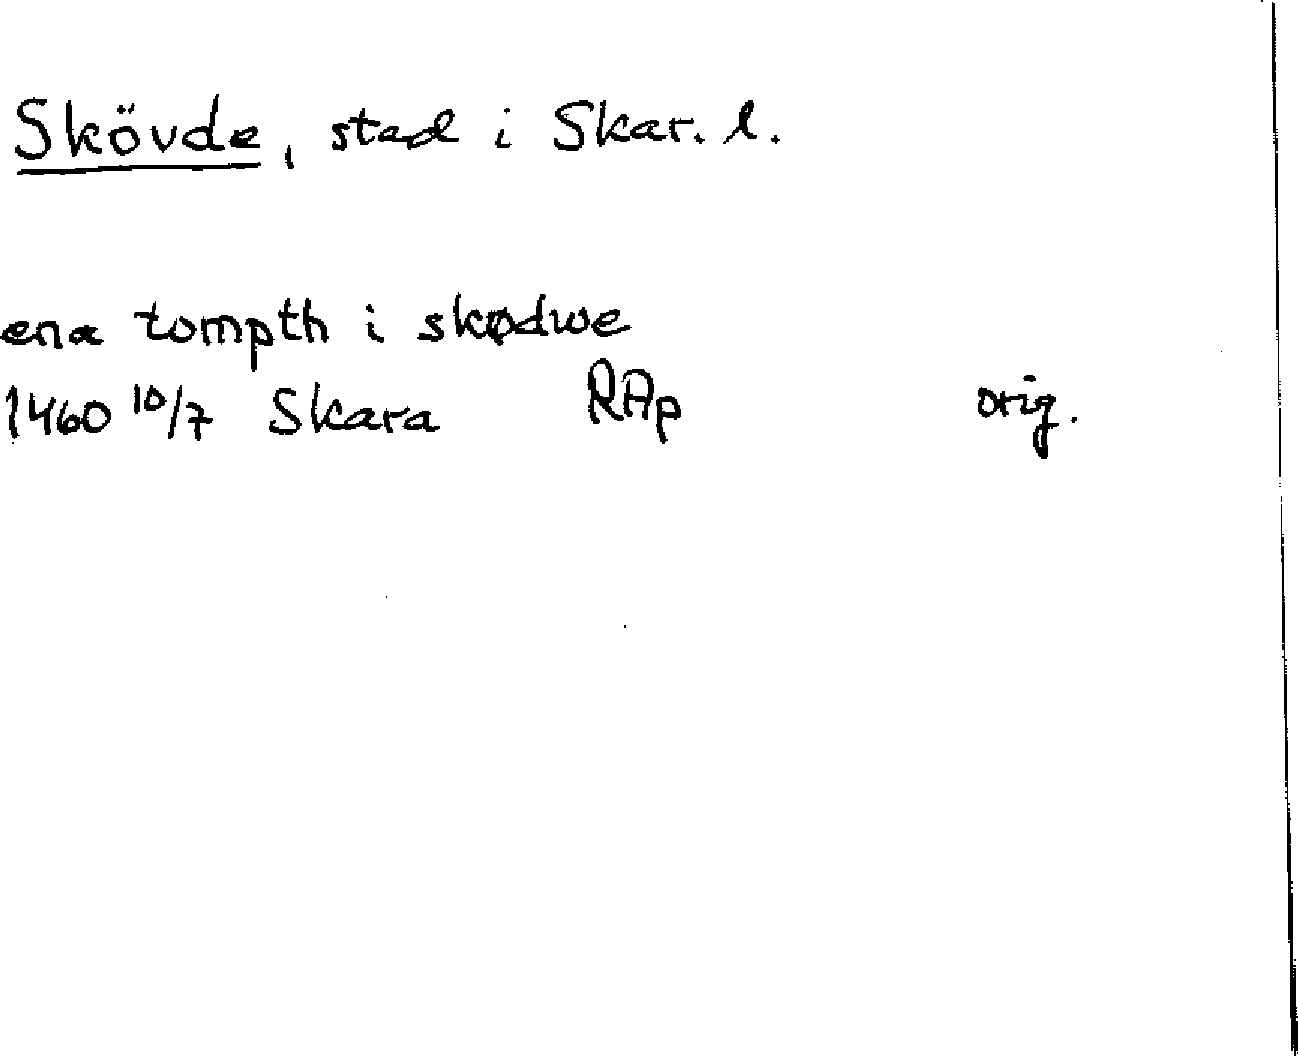 Skövde, stad i Skar. l.
ena tompth i skødwe
1460 10/7 Skara RAp orig.